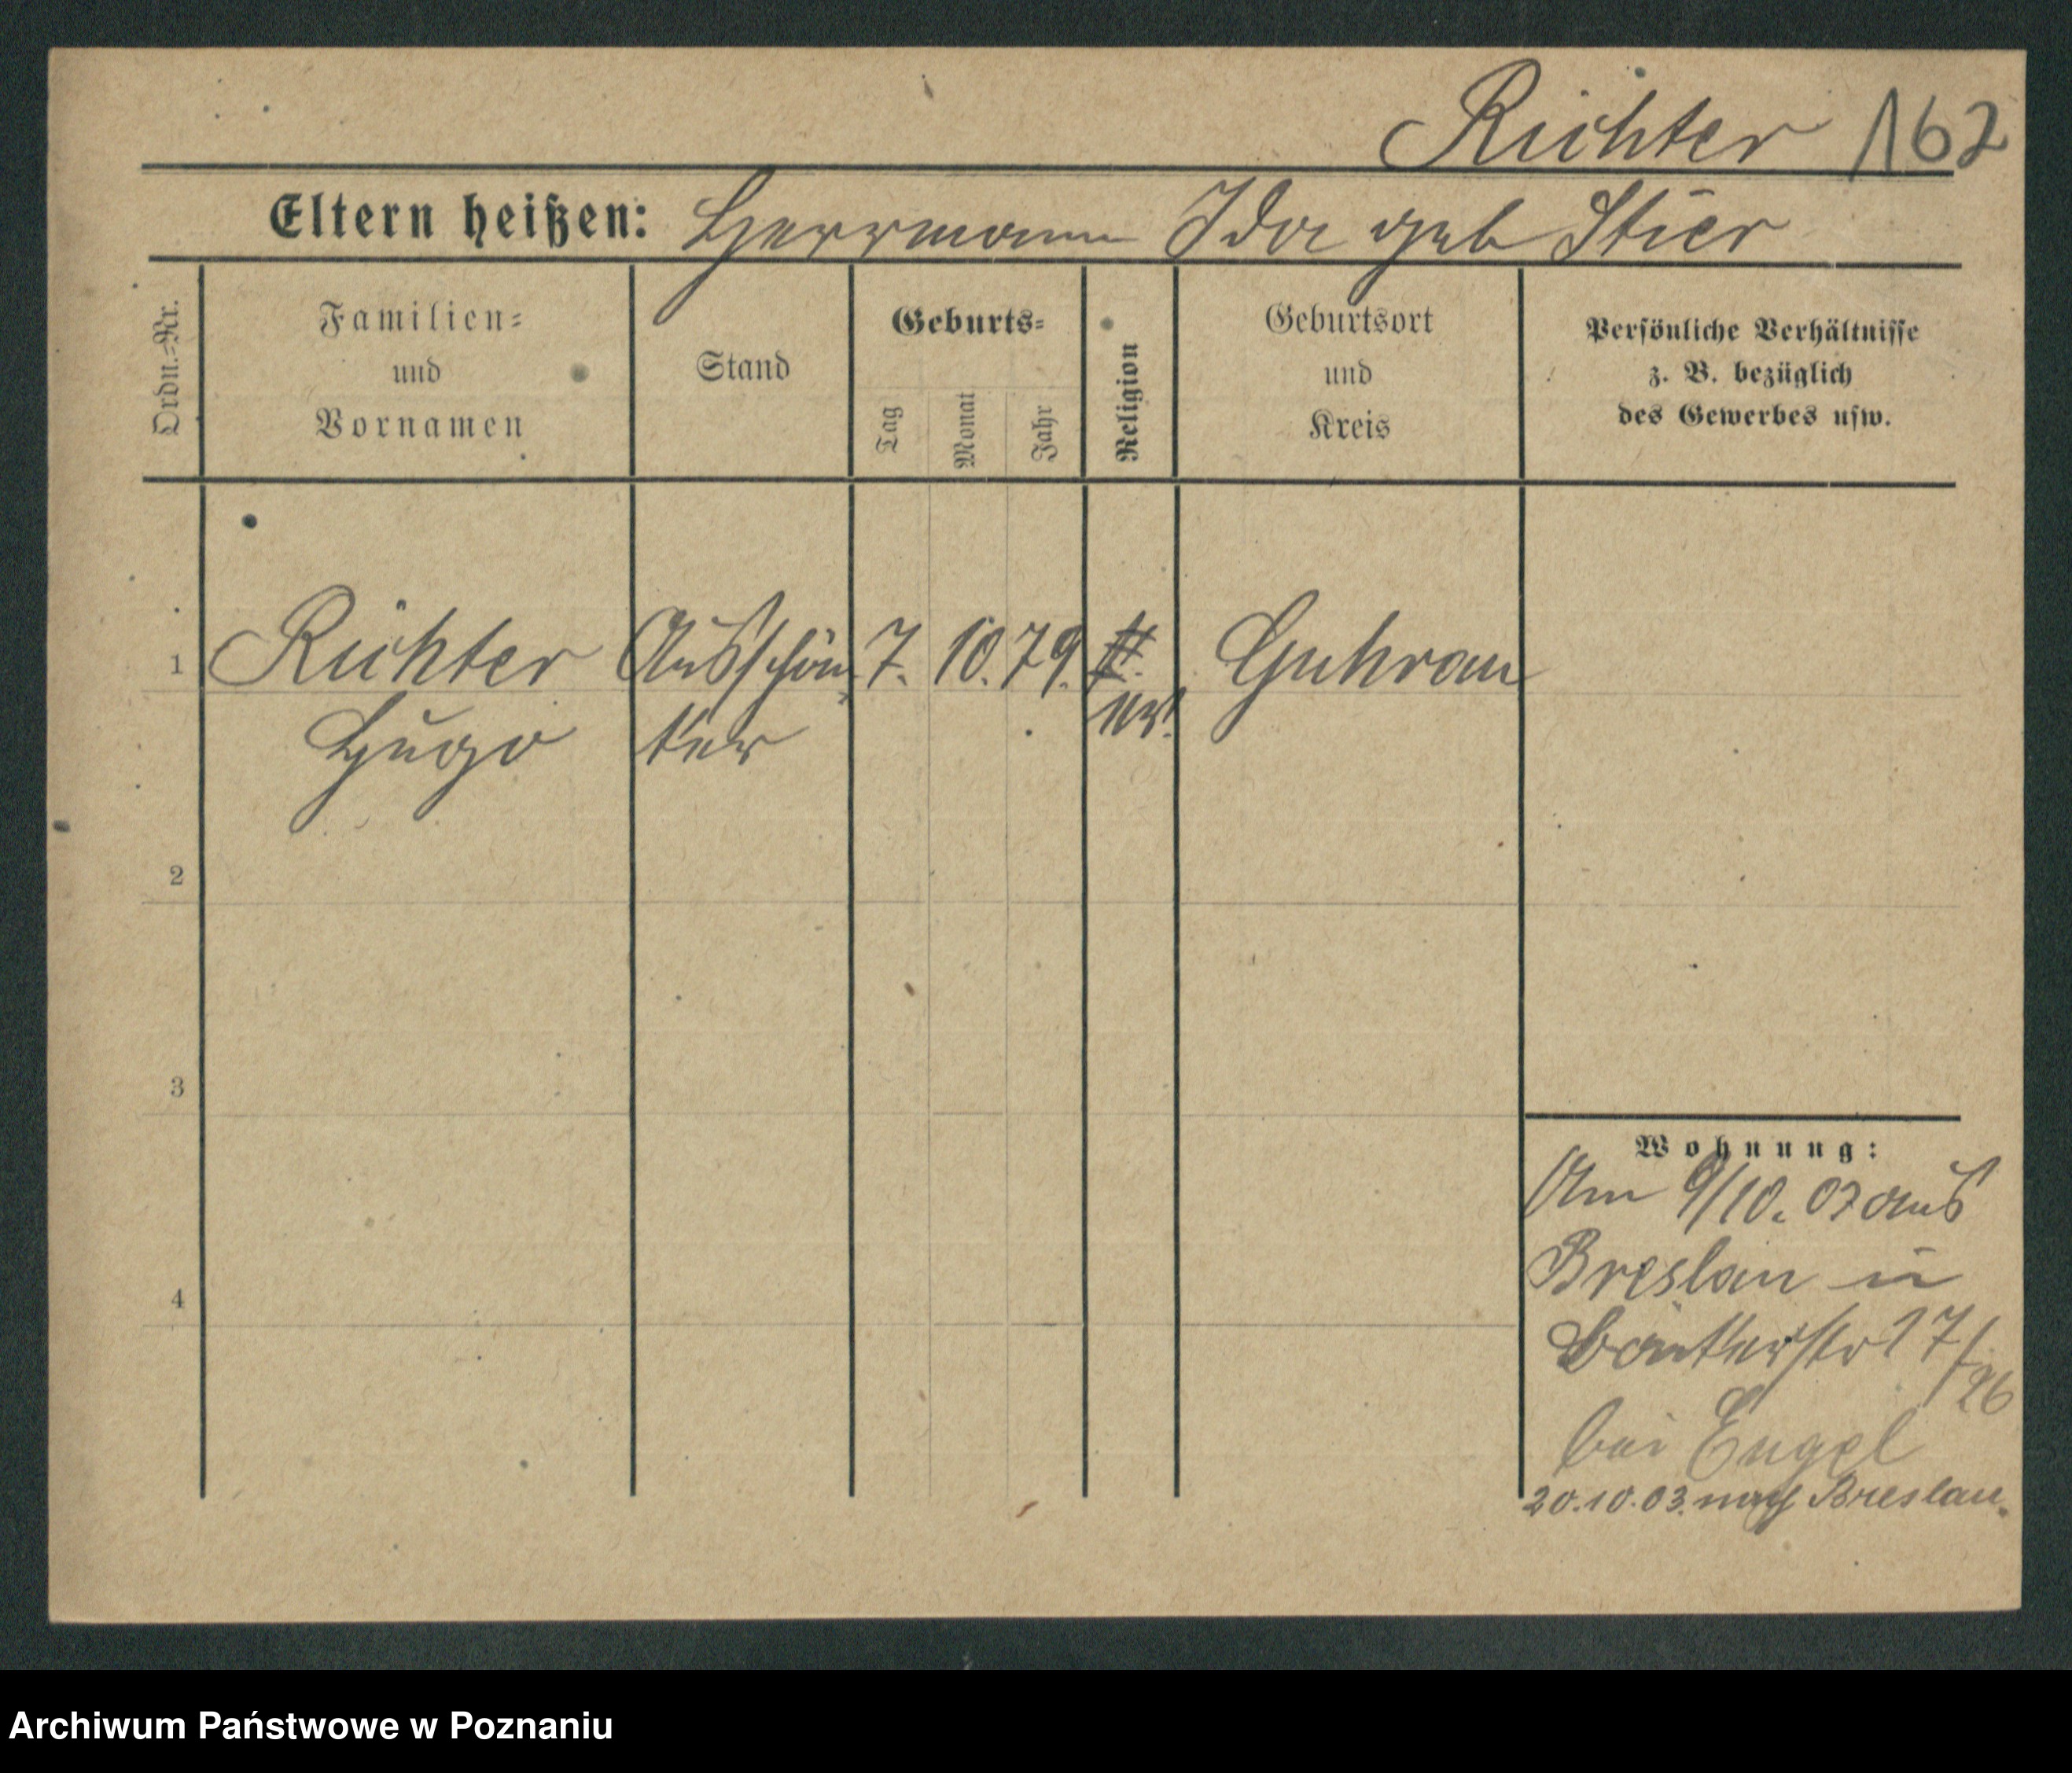 Richter 162
Eltern heißen: Herrmann Ida geb Stier
Ordn.-Nr.
Familien-
und
Vornamen
Stand
Geburts-
Tag
Monat
Jahr
Religion
Geburtsort
und
Kreis
Persönliche Verhältnisse
z. B. bezüglich
des Gewerbes usw.
1 Richter 7. 10. 79. Guhrau
Hugo
2
3
4
Wohnung:
Am 9/10. 03 aus
Breslau
17/26
bei Engel
20.10.03. nach Breslau.
Archiwum Państwowe w Poznaniu